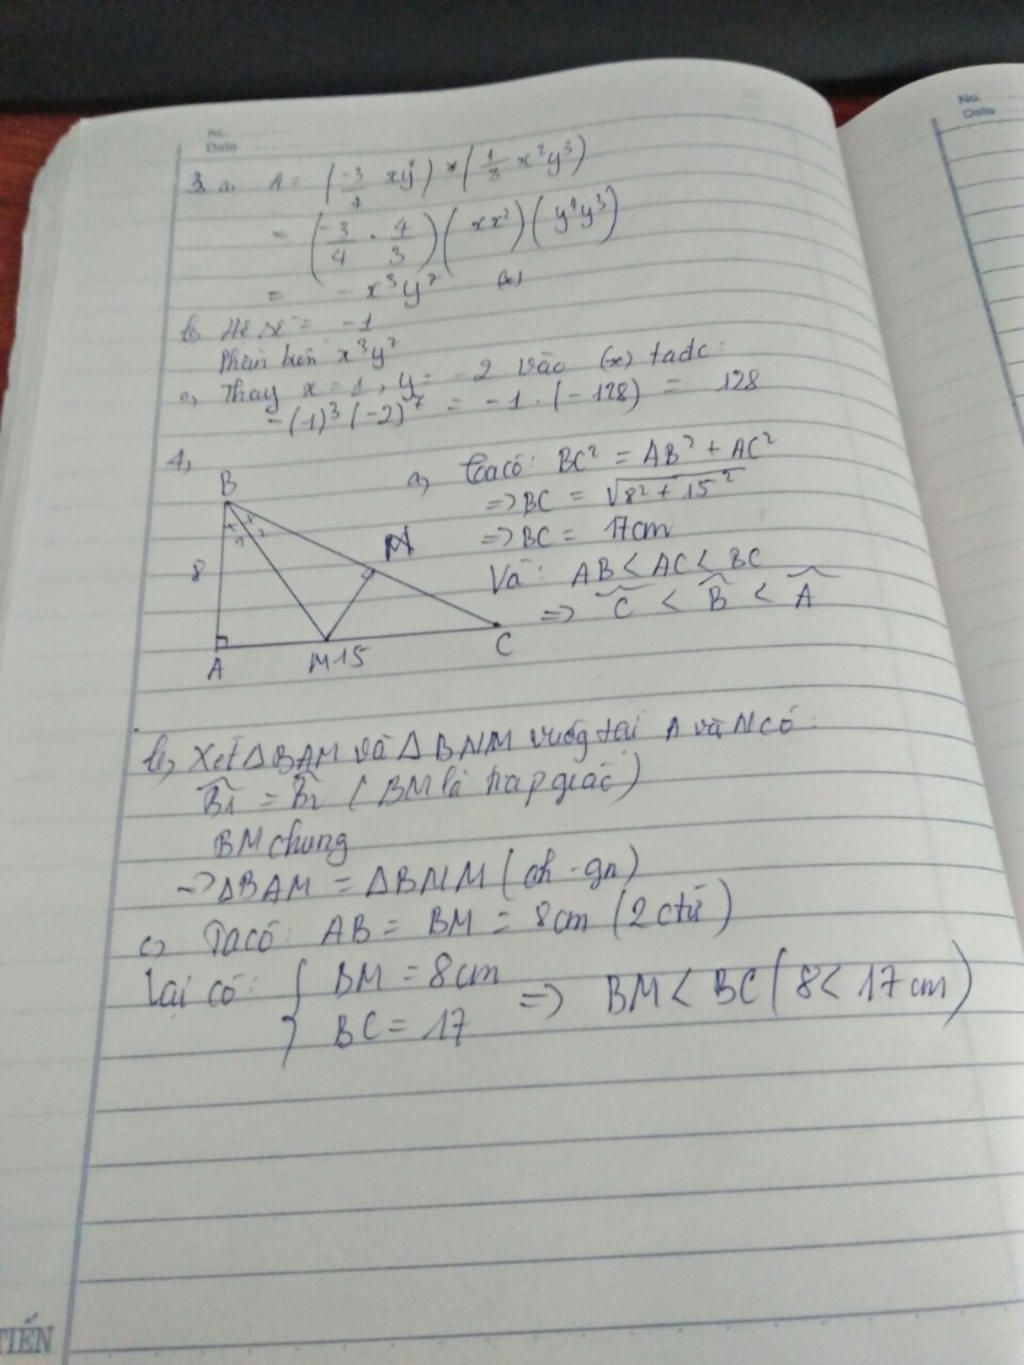 No.
Date
No.
Date
3. a. A = (-3/4 xy⁴) * (4/3 x²y³)
= (-3/4 . 4/3)(xx²)(y⁴y³)
= -x³y⁷ (*)
b, Hệ số = -1
Phần biến x³y⁷
c, Thay x = 1, y = -2 vào (*) tađc:
-(1)³(-2)⁷ = -1 . (-128) = 128
4,
B
1 2
8
N
A
M 15
C
a, Ta có: BC² = AB² + AC²
=> BC = √8² + 15²
=> BC = 17cm
Và: AB < AC < BC
=> Ĉ < B̂ < Â
b, Xét ΔBAM và ΔBNM vuông tại A và N có:
B̂1 = B̂2 (BM là tia p giác)
BM chung
=> ΔBAM = ΔBNM (ch - gn)
c, Ta có: AB = BM = 8cm (2 ctứ)
Lại có: { BM = 8cm
BC = 17
=> BM < BC (8 < 17 cm)
TIẾN